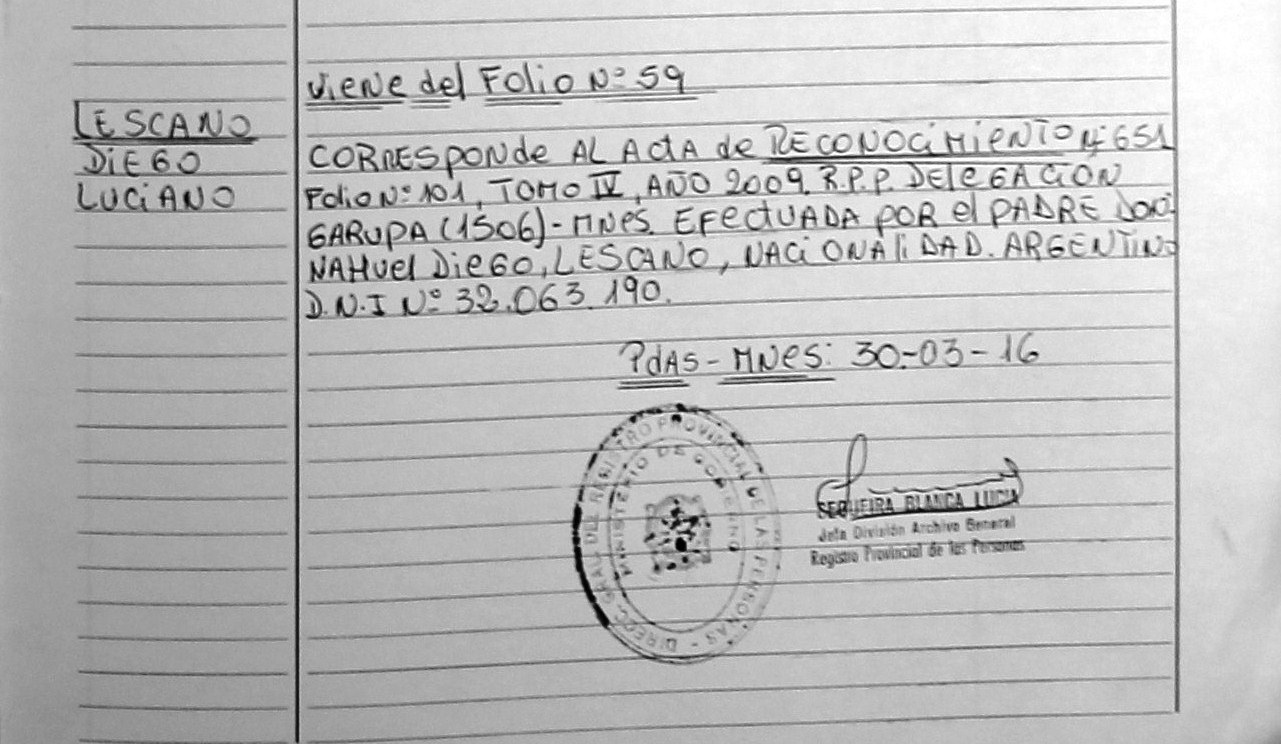 Viene del Folio Nº 59
LESCANO
DIEGO
LUCIANO
CORRESPONDE AL ACTA de RECONOCIMIENTO Nº 651
Folio Nº 101, TOMO IV, AÑO 2009. R.P.P. DELEGACIÓN
GARUPA (1506) - MNES. EFECTUADA POR el PADRE
NAHUEL DIEGO, LESCANO, NACIONALIDAD. ARGENTINO
D.N.I Nº 32.063.190.
PdAS - MNES: 30-03-16
DIRECC. GRAL. DEL REGISTRO PROVINCIAL DE LAS PERSONAS -
MINISTERIO DE GOBIERNO
SEQUEIRA BLANCA LUCIA
Jefa División Archivo General
Registro Provincial de las Personas